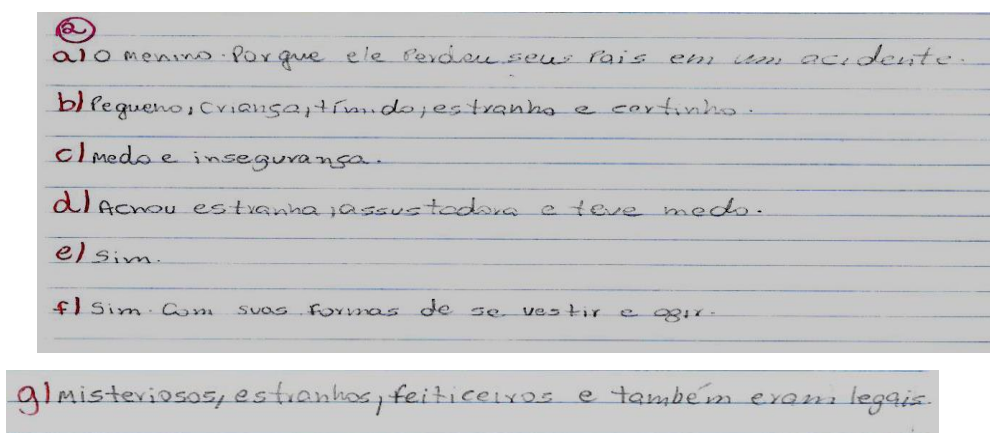 2
a) O menino. Porque ele Perdeu seus Pais em um acidente.
b) Pequeno, criança, tímido, estranho e cortinho.
c) medo e insegurança.
d) Achou estranha, assustadora e teve medo.
e) sim.
f) Sim. Com suas formas de se vestir e agir.
g) misteriosos, estranhos, feiticeiros e também eram legais.